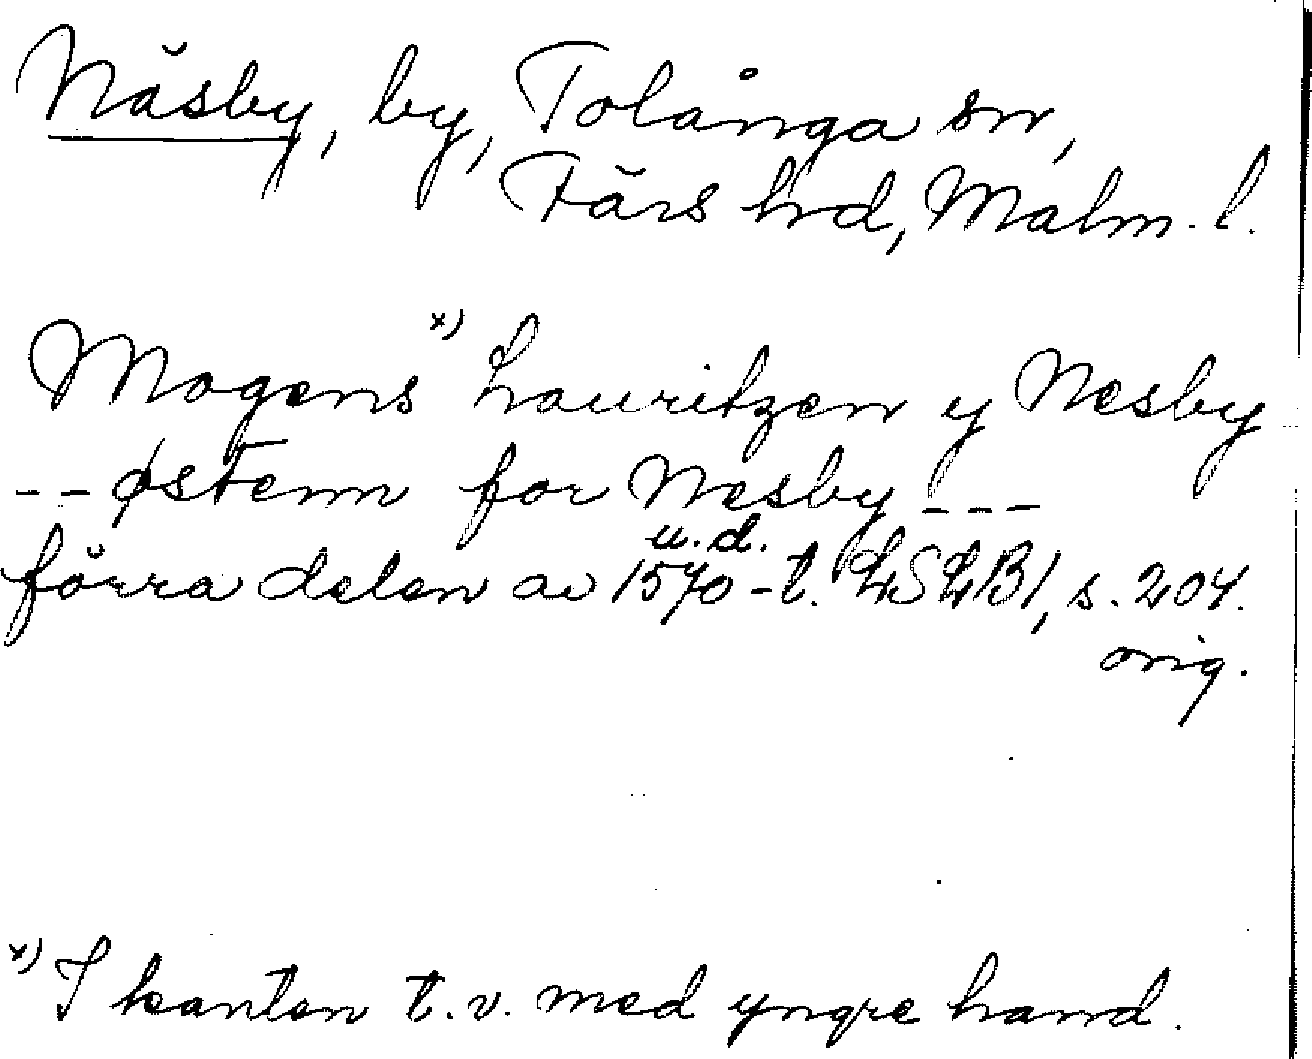 Näsby, by, Tolånga sn,
Färs hrd, Malm. l.
Mogens x) Lauritzen y Nesby
-- østenn for Nesby ---
u.d.
förra delen av 1570-t. LSLB1, s. 204.
orig.
x) I kanten t.v. med yngre hand.